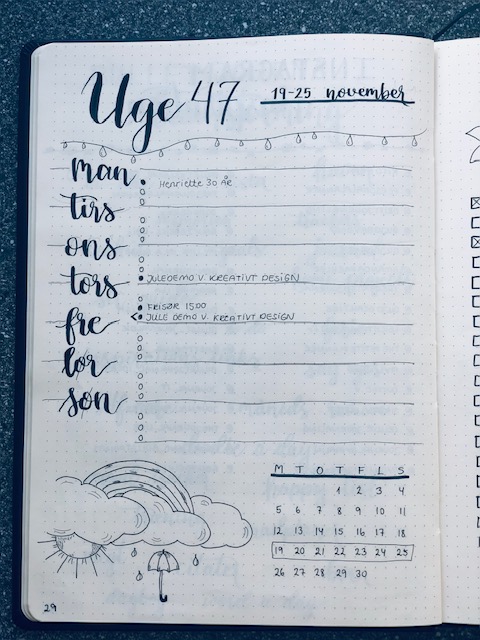 Uge 47
19-25 november
man
Henriette 30 År
tirs
ons
tors
JULEDEMO V. KREATIVT DESIGN
FRISØR 15:00
fre
JULE DEMO V. KREATIVT DESIGN
lør
søn
M T O T F L S
1 2 3 4
5 6 7 8 9 10 11
12 13 14 15 16 17 18
19 20 21 22 23 24 25
26 27 28 29 30
29